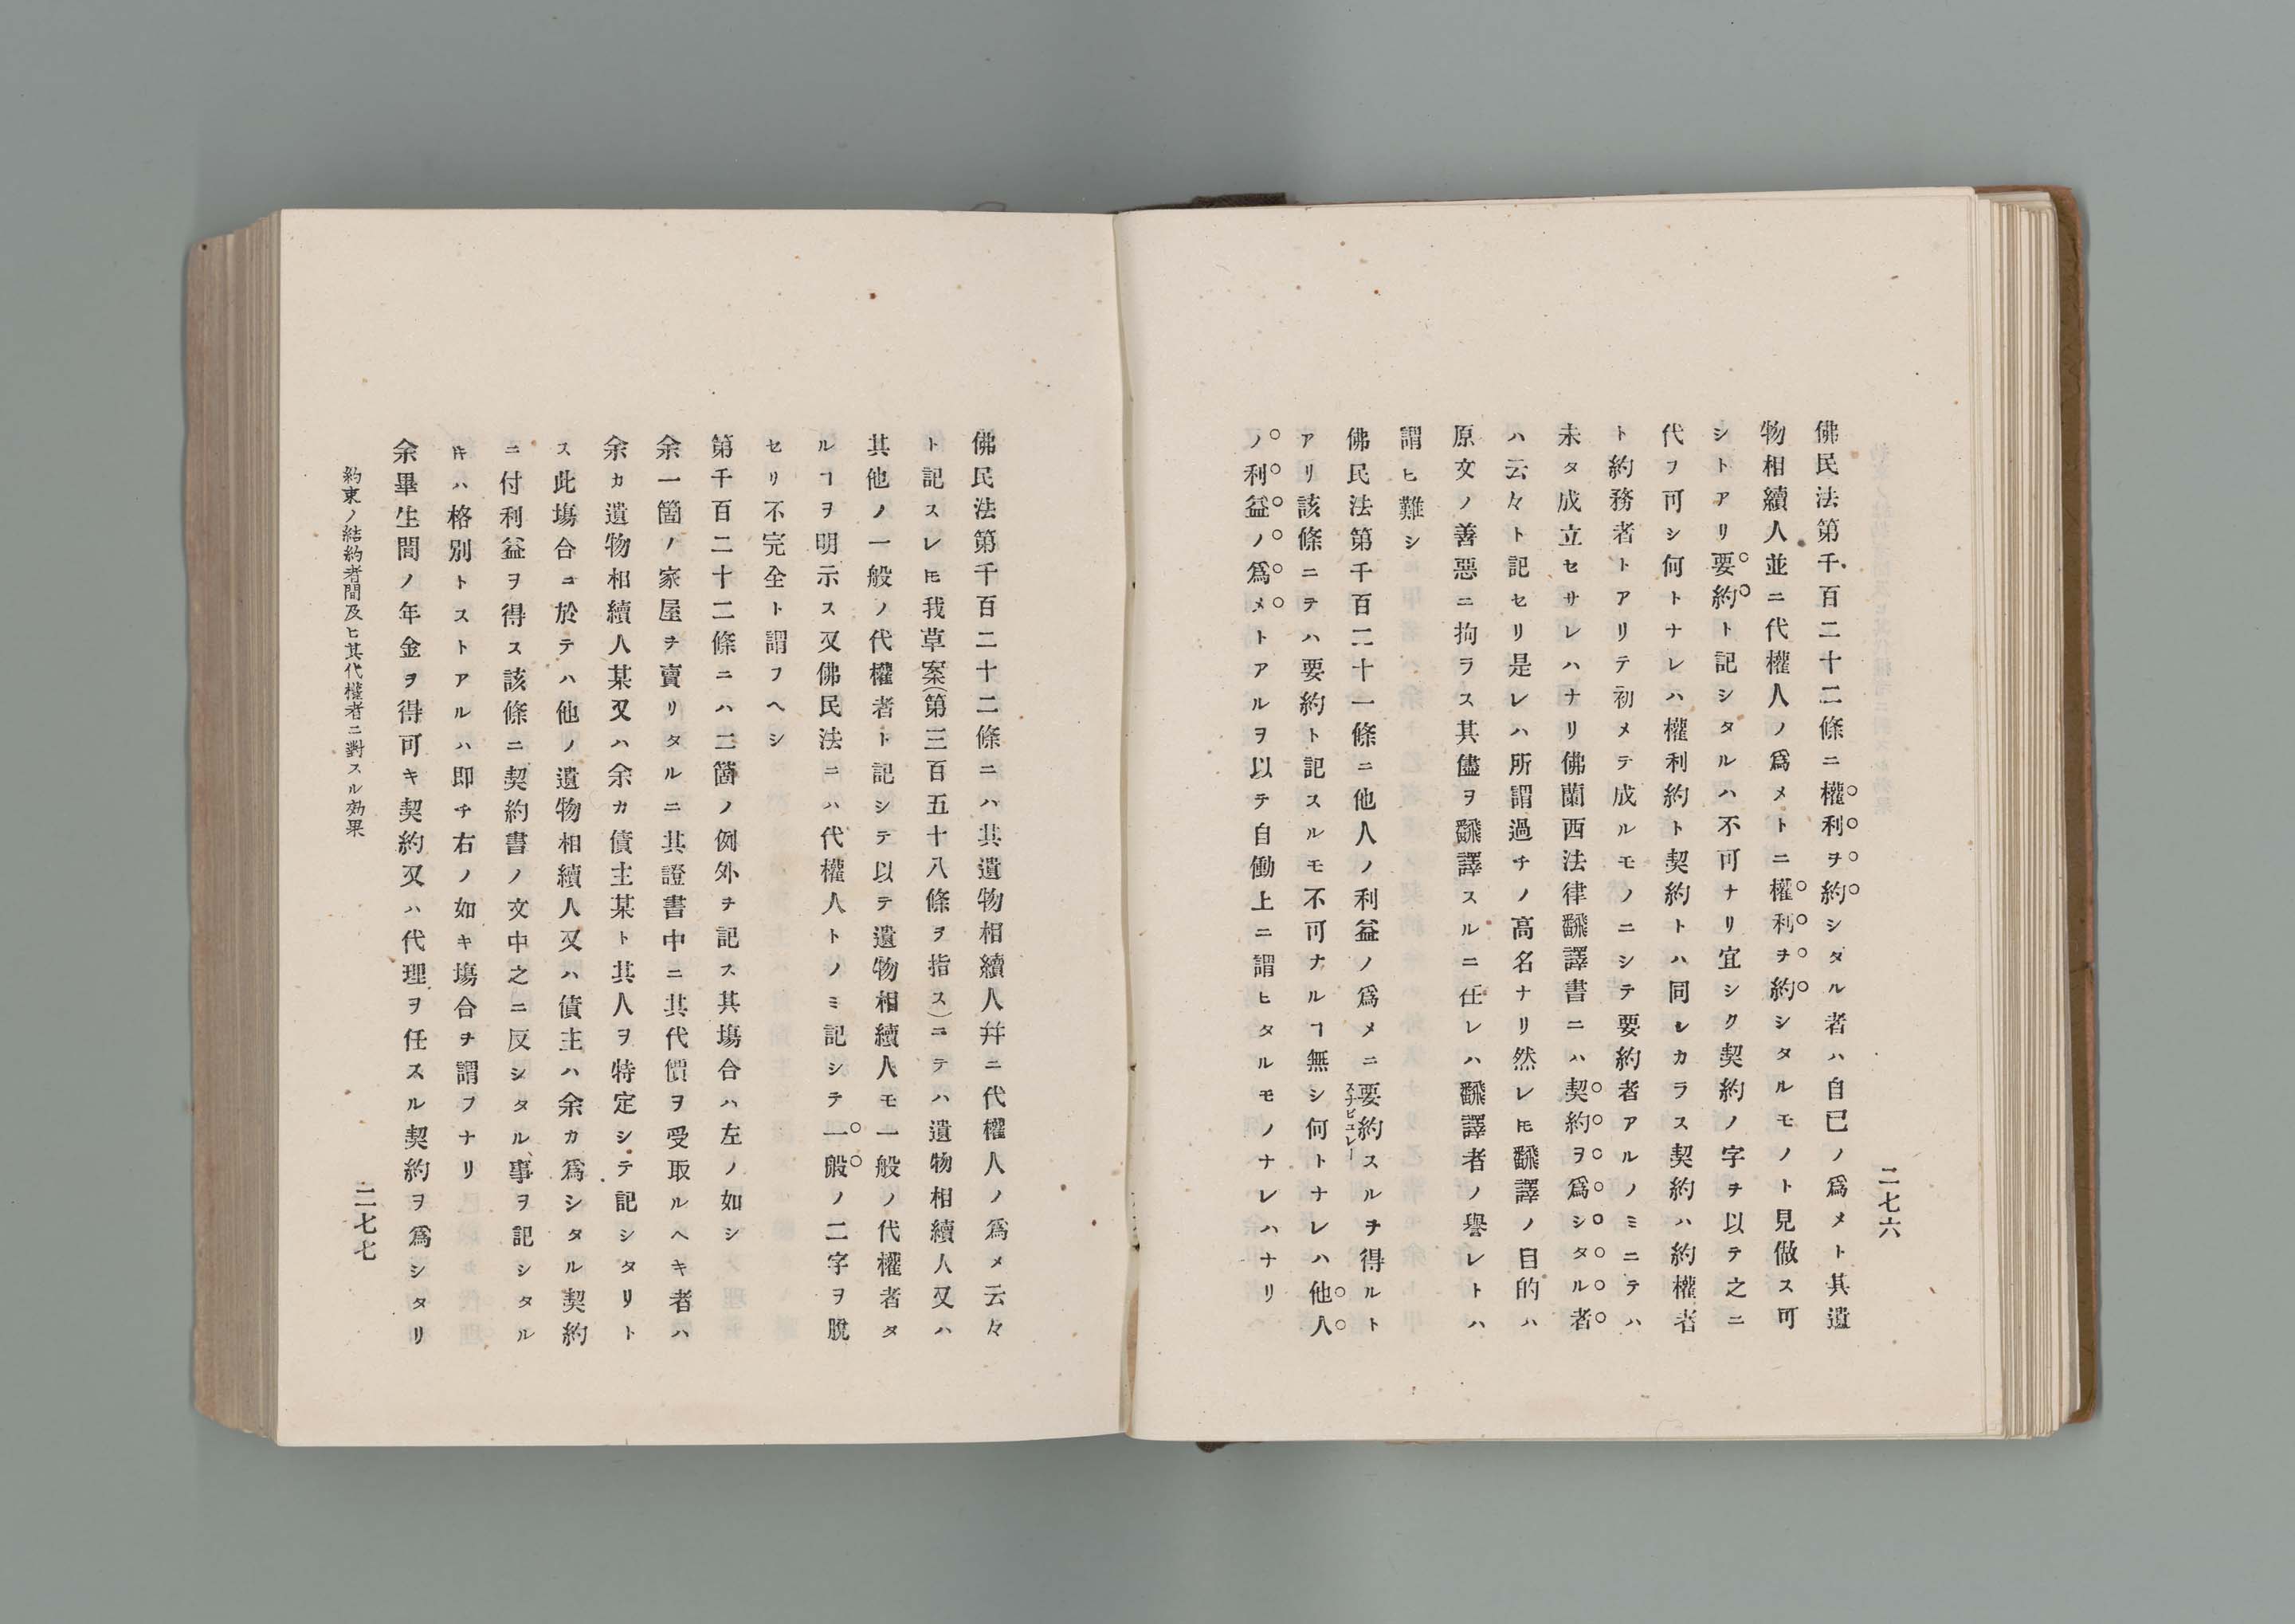 二七六
佛民法第千百二十二條ニ權利ヲ約シタル者ハ自已ノ爲メト其遺
物相續人並ニ代權人ノ爲メトニ權利ヲ約シタルモノト見做ス可
シトアリ要約ト記シタルハ不可ナリ宜シク契約ノ字ヲ以テ之ニ
代フ可シ何トナレハ權利約ト契約トハ同シカラス契約ハ約權者
ト約務者トアリテ初メテ成ルモノニシテ要約者アルノミニテハ
未タ成立セサレハナリ佛蘭西法律飜譯書ニハ契約ヲ爲シタル者
ハ云々ト記セリ是レハ所謂過チノ高名ナリ然レ𪜈飜譯ノ目的ハ
原文ノ善惡ニ拘ラス其儘ヲ飜譯スルニ任レハ飜譯者ノ譽レトハ
謂ヒ難シ
佛民法第千百二十一條ニ他人ノ利益ノ爲メニ要約スルヲ得ルト
スチピユレー
アリ該條ニテハ要約ト記スルモ不可ナルヿ無シ何トナレハ他人
ノ利益ノ爲メトアルヲ以テ自働上ニ謂ヒタルモノナレハナリ
佛民法第千百二十二條ニハ其遺物相續人幷ニ代權人ノ爲メ云々
ト記スレ𪜈我草案(第三百五十八條ヲ指ス)ニテハ遺物相續人又ハ
其他ノ一般ノ代權者ト記シテ以テ遺物相續人モ一般ノ代權者タ
ルヿヲ明示ス又佛民法ニハ代權人トノミ記シテ一般ノ二字ヲ脫
セリ不完全ト謂フヘシ
第千百二十二條ニハ二箇ノ例外ヲ記ス其塲合ハ左ノ如シ
余一箇ノ家屋ヲ賣リタルニ其證書中ニ其代價ヲ受取ルヘキ者ハ
余カ遺物相續人某又ハ余カ債主某ト其人ヲ特定シテ記シタリト
ス此塲合ニ於テハ他ノ遺物相續人又ハ債主ハ余カ爲シタル契約
ニ付利益ヲ得ス該條ニ契約書ノ文中之ニ反シタル事ヲ記シタル
𪜈ハ格別トストアルハ即チ右ノ如キ塲合ヲ謂フナリ
余畢生間ノ年金ヲ得可キ契約又ハ代理ヲ任スル契約ヲ爲シタリ
約束ノ結約者間及ヒ其代權者ニ對スル効果
二七七